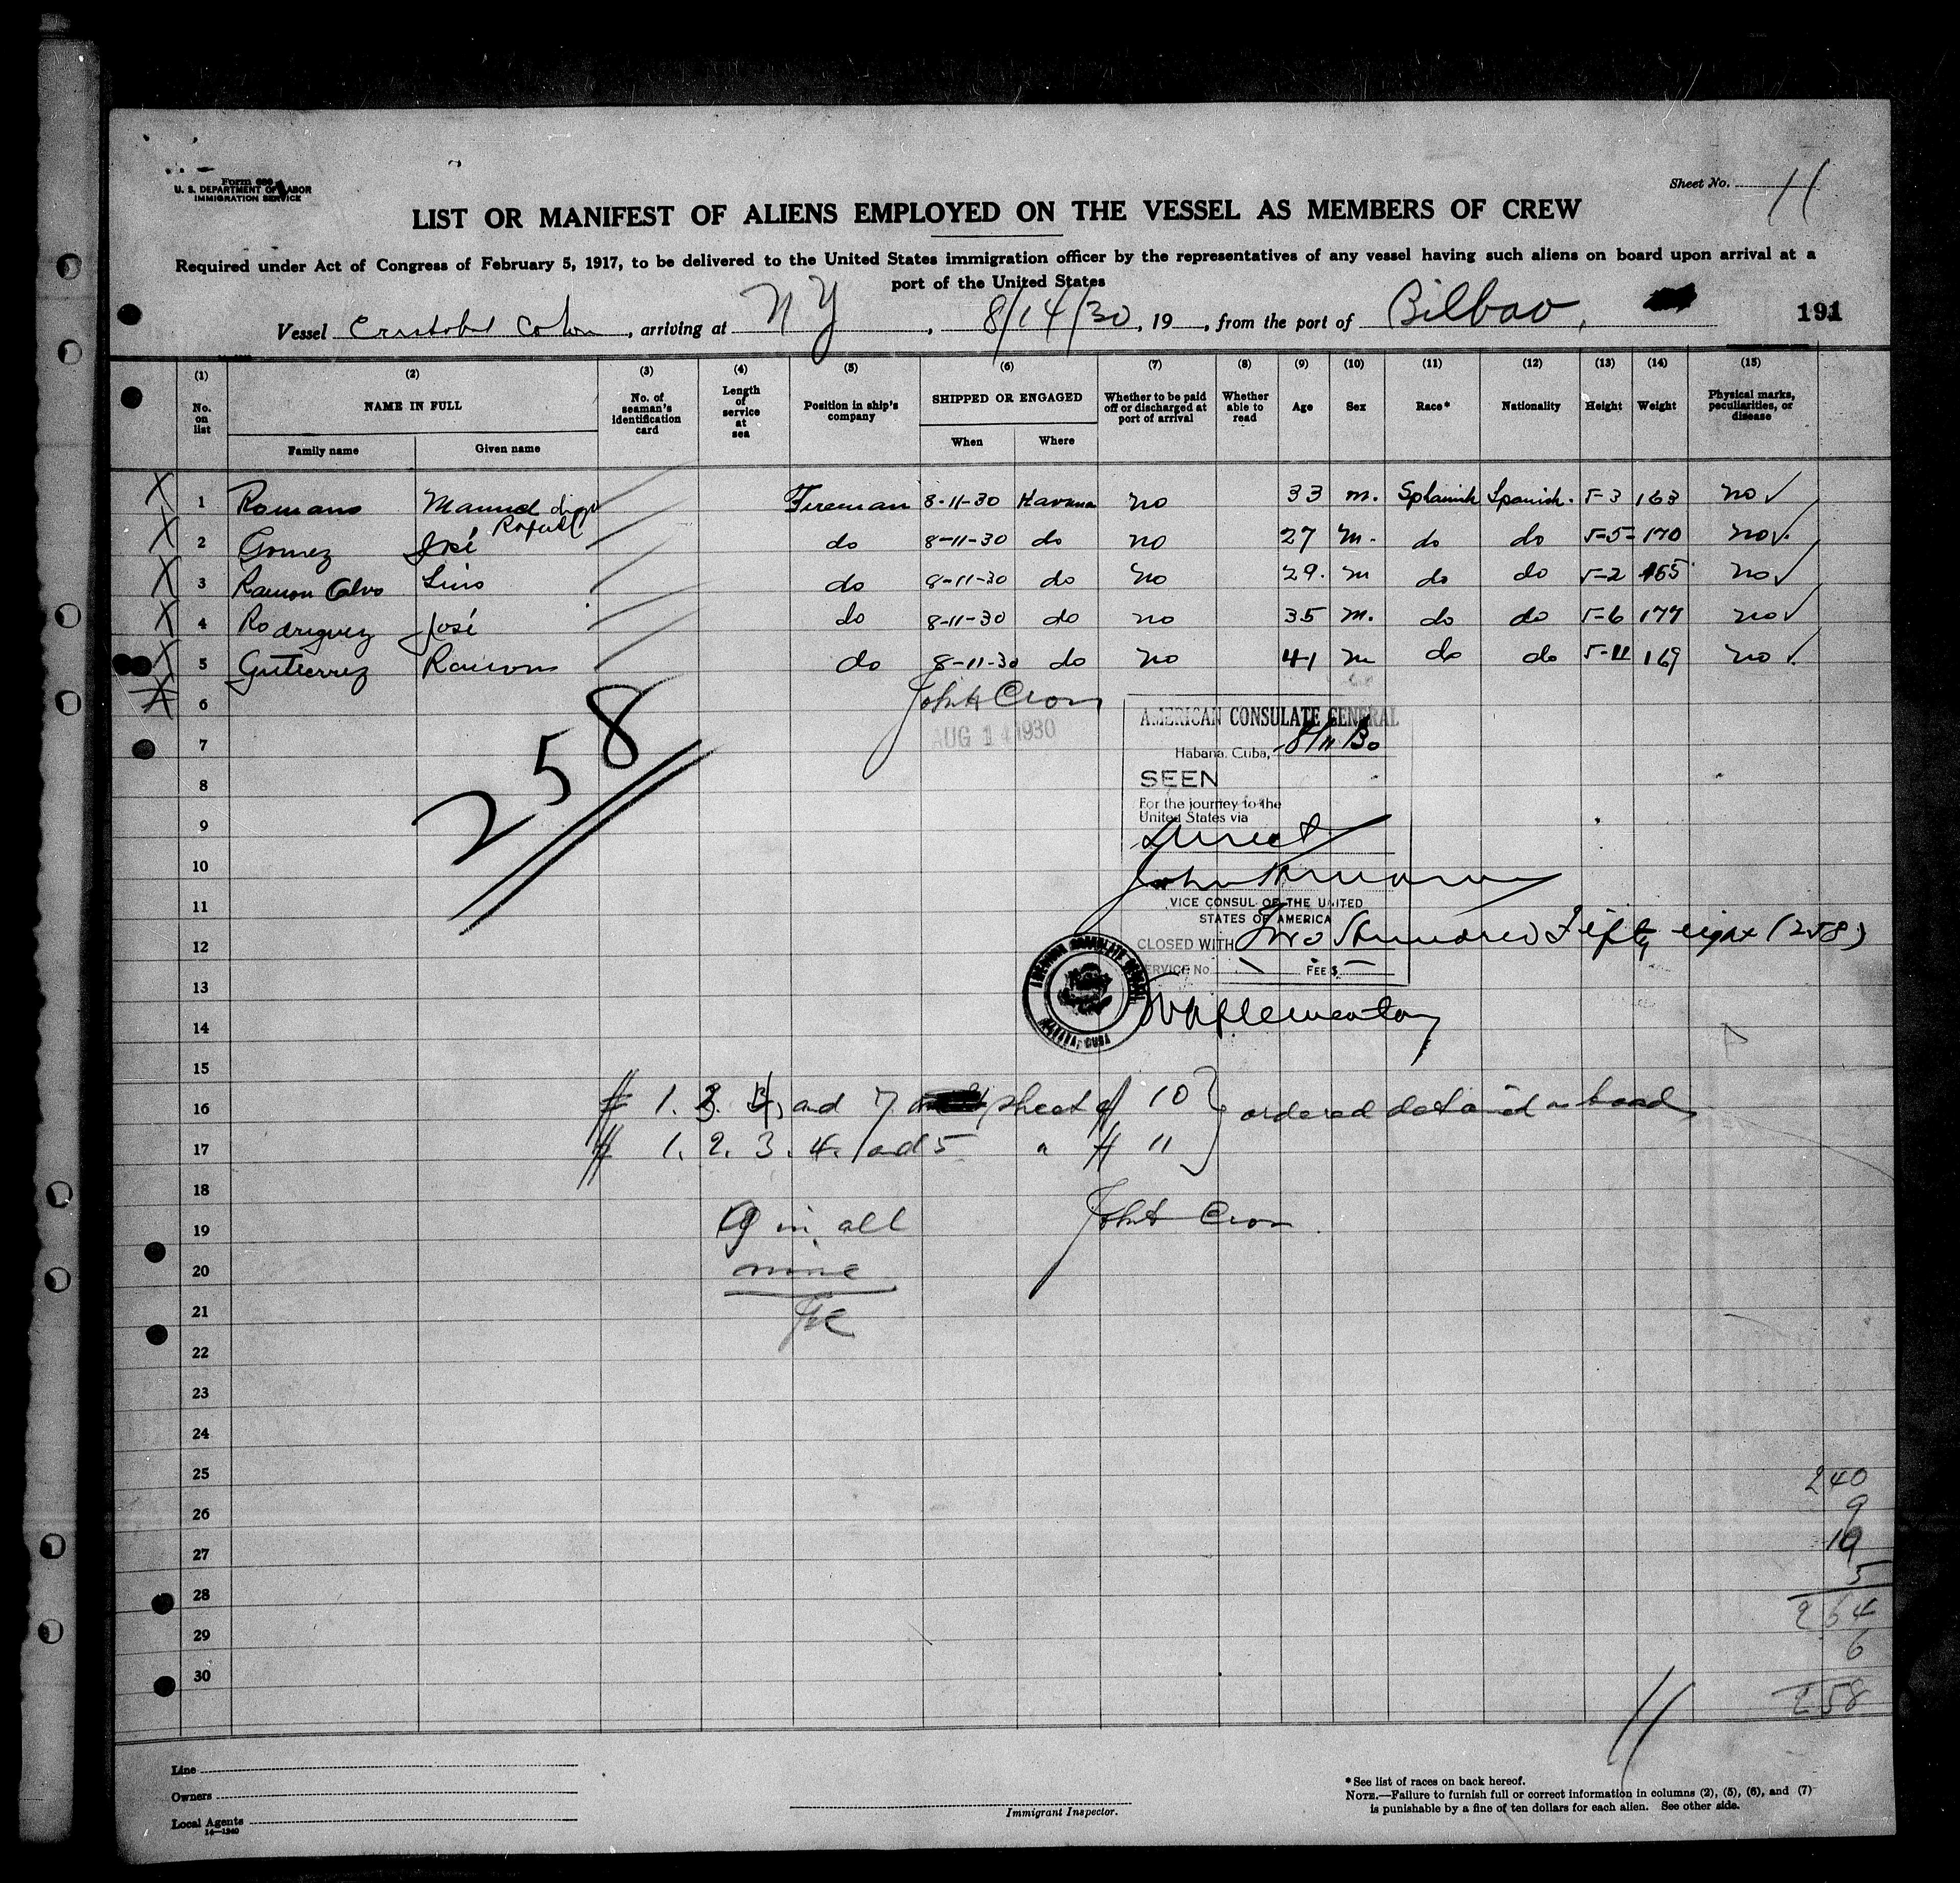 Form 680
U. S. DEPARTMENT OF LABOR
IMMIGRATION SERVICE
Sheet No. 11
LIST OR MANIFEST OF ALIENS EMPLOYED ON THE VESSEL AS MEMBERS OF CREW
Required under Act of Congress of February 5, 1917, to be delivered to the United States immigration officer by the representatives of any vessel having such aliens on board upon arrival at a
port of the United States
Vessel Cristobal Colon, arriving at N Y, 8/14/30, 19, from the port of Bilbao, 191
(1) (2) (3) (4) (5) (6) (7) (8) (9) (10) (11) (12) (13) (14) (15)
No. on list NAME IN FULL No. of seaman's identification card Length of service at sea Position in ship's company SHIPPED OR ENGAGED Whether to be paid off or discharged at port of arrival Whether able to read Age Sex Race* Nationality Height Weight Physical marks, peculiarities, or disease
Family name Given name When Where
X 1 Romano Manuel Fireman 8-11-30 Havana no 33 m. Splanish Spanish. 5-3 163 no ✓
Rafael
X 2 Gomez José do 8-11-30 do no 27 m. do do 5-5 170 no ✓
X 3 Ramon Calvo Lino do 8-11-30 do no 29. m do do 5-2 165 no ✓
X 4 Rodriguez José do 8-11-30 do no 35 m. do do 5-6 177 no ✓
X 5 Gutierrez Ramon do 8-11-30 do no 41 m do do 5-11 169 no ✓
X 6 John Cron
258
AUG 14 1930
AMERICAN CONSULATE GENERAL
7
Habana, Cuba, 8/11 30
8 SEEN
For the journey to the
9 United States via
direct
10
11 VICE CONSUL OF THE UNITED
STATES OF AMERICA
12 CLOSED WITH Two Hundred Fifty eight (258)
SERVICE No FEE $
AMERICAN CONSULATE GENERAL
HABANA, CUBA
13
Supplementary
14
15
16 # 1. 3. 4, and 7 sheet # 10 ordered detained on board
17 # 1. 2. 3. 4. and 5 " # 11
18
19 9 in all John Cron
20 nine
21
22
23
24
25 240
26 9
27 19
28 5
264
29 6
30 258
11
Line
Owners
Local Agents
14—1240
Immigrant Inspector.
*See list of races on back hereof.
NOTE.—Failure to furnish full or correct information in columns (2), (5), (6), and (7)
is punishable by a fine of ten dollars for each alien. See other side.